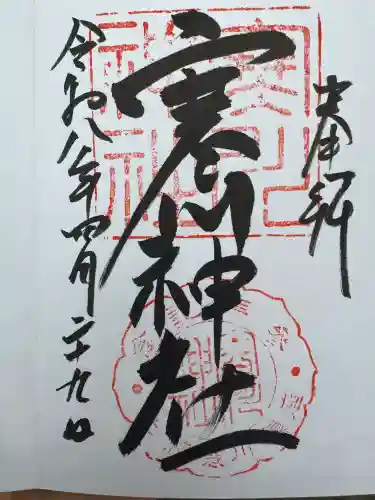 奉拝
寒川神社
令和八年四月二十九日